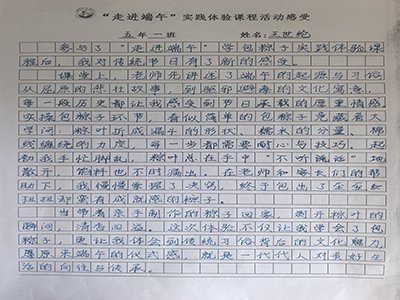 “走进端午”实践体验课程活动感受
五年一班 姓名：王世纶
参与了“走进端午”学包粽子实践体验课
程后，我对传统节日有了新的感受。
课堂上，老师先讲述了端午的起源与习俗
从屈原的悲壮故事，到驱邪避毒的文化寓意，
每一段历史都让我感受到节日承载的厚重情感。
实操包粽子环节，看似简单的包粽子竟藏着大
学问：粽叶折成漏斗的形状、糯米的分量、棉
线缠绕的力度，每一步都需要耐心与技巧。起
初我手忙脚乱，粽叶总在手中“不听说话”地
散开，馅料也不时漏出。在老师和家长们的帮
助下，我慢慢掌握了决窍，终于包出了歪歪
扭扭却蛮有成就感的粽子。
当带着亲手制作的粽子回家，剥开粽叶的
瞬间，清香四溢。这次体验不仅让我学会了包
粽子，更让我体会到传统习俗背后的文化魅力，
原来端午的仪式感，就是一代代人对美好生
活的向往与传承。